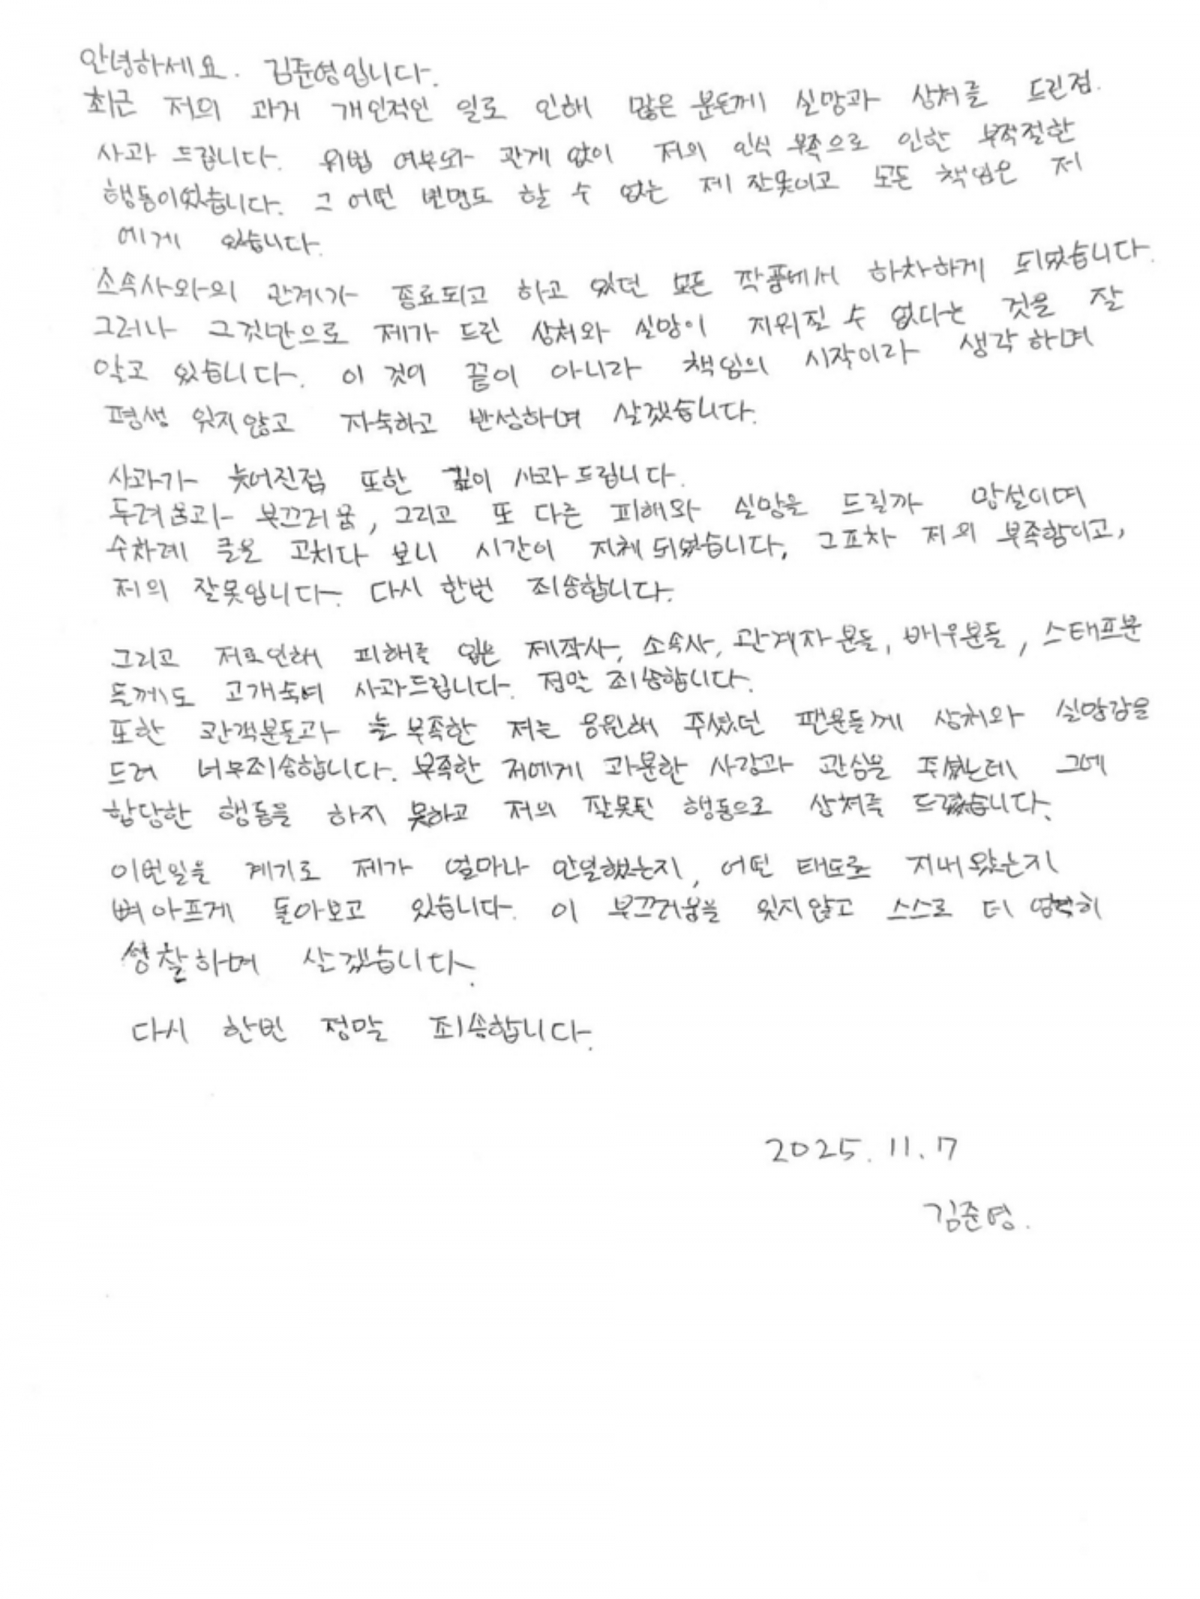 안녕하세요. 김준영입니다.
최근 저의 과거 개인적인 일로 인해 많은 분들께 실망과 상처를 드린점
사과 드립니다. 위법 여부와 관계 없이 저의 인식 부족으로 인한 부적절한
행동이었습니다. 그 어떤 변명도 할 수 없는 제 잘못이고 모든 책임은 저
에게 있습니다.
소속사와의 관계가 종료되고 하고 있던 모든 작품에서 하차하게 되었습니다.
그러나 그것만으로 제가 드린 상처와 실망이 지워질 수 없다는 것을 잘
알고 있습니다. 이 것이 끝이 아니라 책임의 시작이라 생각하며
평생 잊지않고 자숙하고 반성하며 살겠습니다.
사과가 늦어진점 또한 깊이 사과드립니다.
두려움과 부끄러움, 그리고 또 다른 피해와 실망을 드릴까 망설이며
수차례 글을 고치다 보니 시간이 지체 되었습니다, 그조차 저의 부족함이고,
저의 잘못입니다. 다시 한번 죄송합니다.
그리고 저로인해 피해를 입은 제작사, 소속사, 관계자분들, 배우분들, 스태프분
들께도 고개숙여 사과드립니다. 정말 죄송합니다.
또한 관객분들과 부족한 저를 응원해 주셨던 팬분들께 상처와 실망감을
드려 너무죄송합니다. 부족한 저에게 과분한 사랑과 관심을 주셨는데 그에
합당한 행동을 하지 못하고 저의 잘못된 행동으로 상처를 드렸습니다.
이번일을 계기로 제가 얼마나 안일했는지, 어떤 태도로 지내왔는지
뼈아프게 돌아보고 있습니다. 이 부끄러움을 잊지않고 스스로 더 엄격히
성찰하며 살겠습니다.
다시 한번 정말 죄송합니다.
2025. 11. 7
김준영.